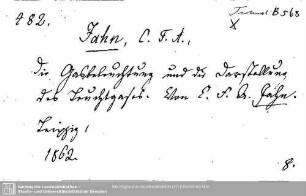 482.
Technol B 568
X
Jahn, C. F. A.,
Die Gasbeleuchtung und die Darstellung
des Leuchtgases. Von C. F. A. Jahn.
Leipzig,
1862.
8.
Sächsische Landesbibliothek -
Staats- und Universitätsbibliothek Dresden